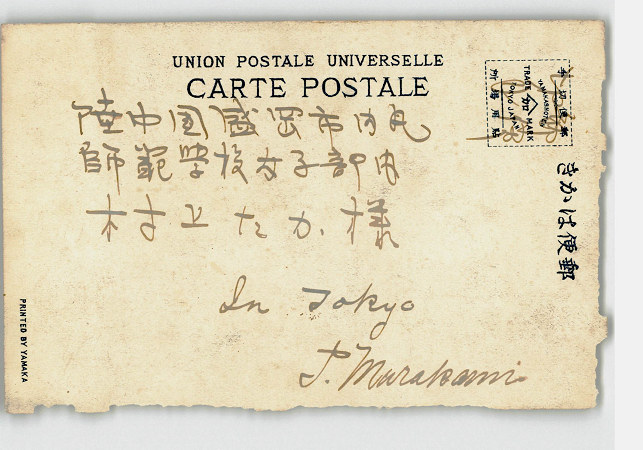 UNION POSTALE UNIVERSELLE
CARTE POSTALE
陸中国盛岡市内丸
師範学校女子部内
村上たか様
In Tokyo
P. Murakami
きかは便郵
PRINTED BY YAMAKA
郵便切手
貼用箇所
YAMAKASHOTEN
TRADE MARK
TOKYO JAPAN